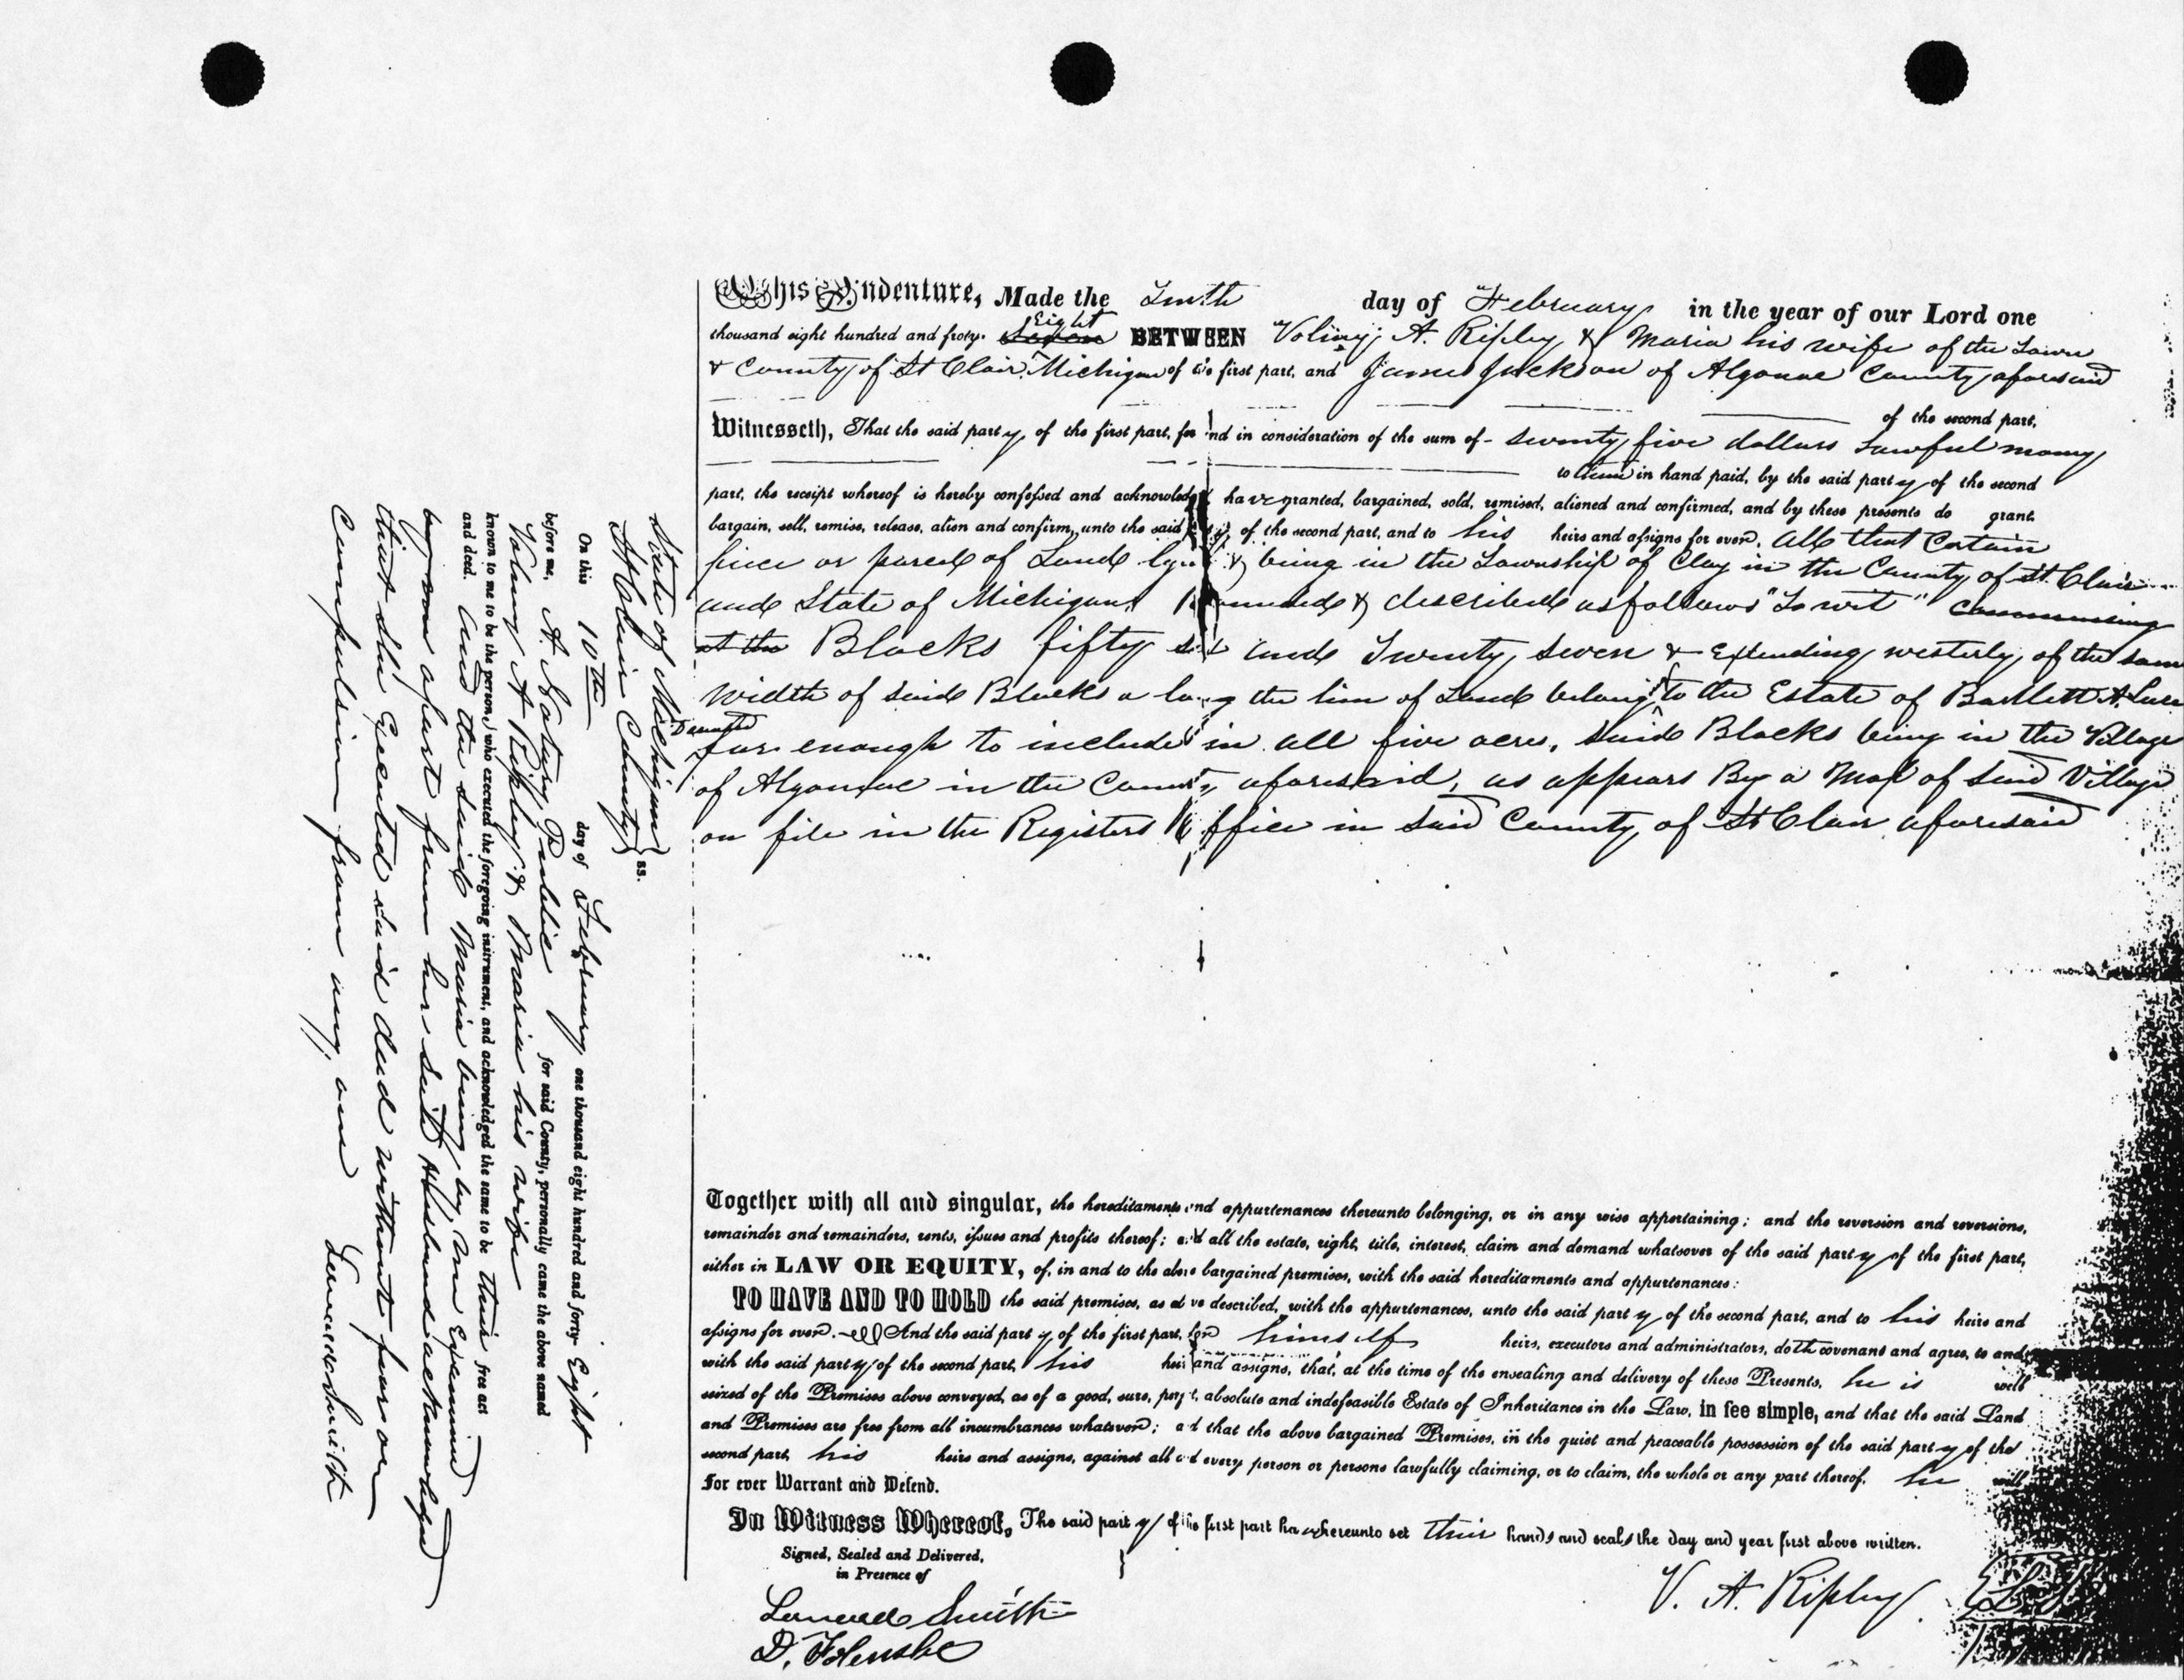 This Indenture, Made the Tenth day of February in the year of our Lord one
thousand eight hundred and forty- Seven Eight BETWEEN Volney A. Ripley & Maria his wife of the Town
& County of St Clair Michigan of the first part, and James Jackson of Algonac County aforesaid
of the second part,
Witnesseth, That the said party of the first part, for and in consideration of the sum of - seventy five dollars Lawful money
to them in hand paid, by the said party of the second
part, the receipt whereof is hereby confessed and acknowledged have granted, bargained, sold, remised, aliened and confirmed, and by these presents do grant,
bargain, sell, remise, release, alien and confirm, unto the said party of the second part, and to his heirs and assigns for ever, All that Certain
piece or parcel of Land lying & being in the Township of Clay in the County of St. Clair
and State of Michigan, Bounded & described as follows "To wit" Commencing
at the Blocks fifty six and Twenty Seven & Extending westerly of the same
width of said Blocks a long the line of Land belong to the Estate of Bartlett A. Luce
Deceased
far enough to include in all five acres, Said Blocks being in the Village
of Algonac in the County aforesaid, as appears By a Map of Said Village
on file in the Registers Office in Said County of St Clair aforesaid
Together with all and singular, the hereditaments and appurtenances thereunto belonging, or in any wise appertaining; and the reversion and reversions,
remainder and remainders, rents, issues and profits thereof; and all the estate, right, title, interest, claim and demand whatsover of the said party of the first part,
either in LAW OR EQUITY, of, in and to the above bargained premises, with the said hereditaments and appurtenances:
TO HAVE AND TO HOLD the said premises, as above described, with the appurtenances, unto the said party of the second part, and to his heirs and
assigns for ever. And the said party of the first part, for himself heirs, executors and administrators, doth covenant and agree, to and
with the said party of the second part, his heirs and assigns, that, at the time of the ensealing and delivery of these Presents, he is well
seized of the Premises above conveyed, as of a good, sure, perfect, absolute and indefeasible Estate of Inheritance in the Law, in fee simple, and that the said Land
and Premises are free from all incumbrances whatever; and that the above bargained Premises, in the quiet and peaceable possession of the said party of the
second part, his heirs and assigns, against all and every person or persons lawfully claiming, or to claim, the whole or any part thereof, he will
For ever Warrant and Defend.
In Witness Whereof, The said party of the first part have hereunto set their hands and seals the day and year first above written.
Signed, Sealed and Delivered,
in Presence of
Leonard Smith
V. A. Ripley L.S.
State of Michigan
St Clair County } ss.
On this 10th day of February one thousand eight hundred and forty- Eight
before me, A. Notary Public for said County, personally came the above named
Volney A Ripley & Maria his wife
known to me to be the person s who executed the foregoing instrument, and acknowledged the same to be their free act
and deed. And the said Maria being by me Examined
by me apart from her said Husband acknowledged
that she Executed said deed without fear or
Compulsion from any one Leonard Smith